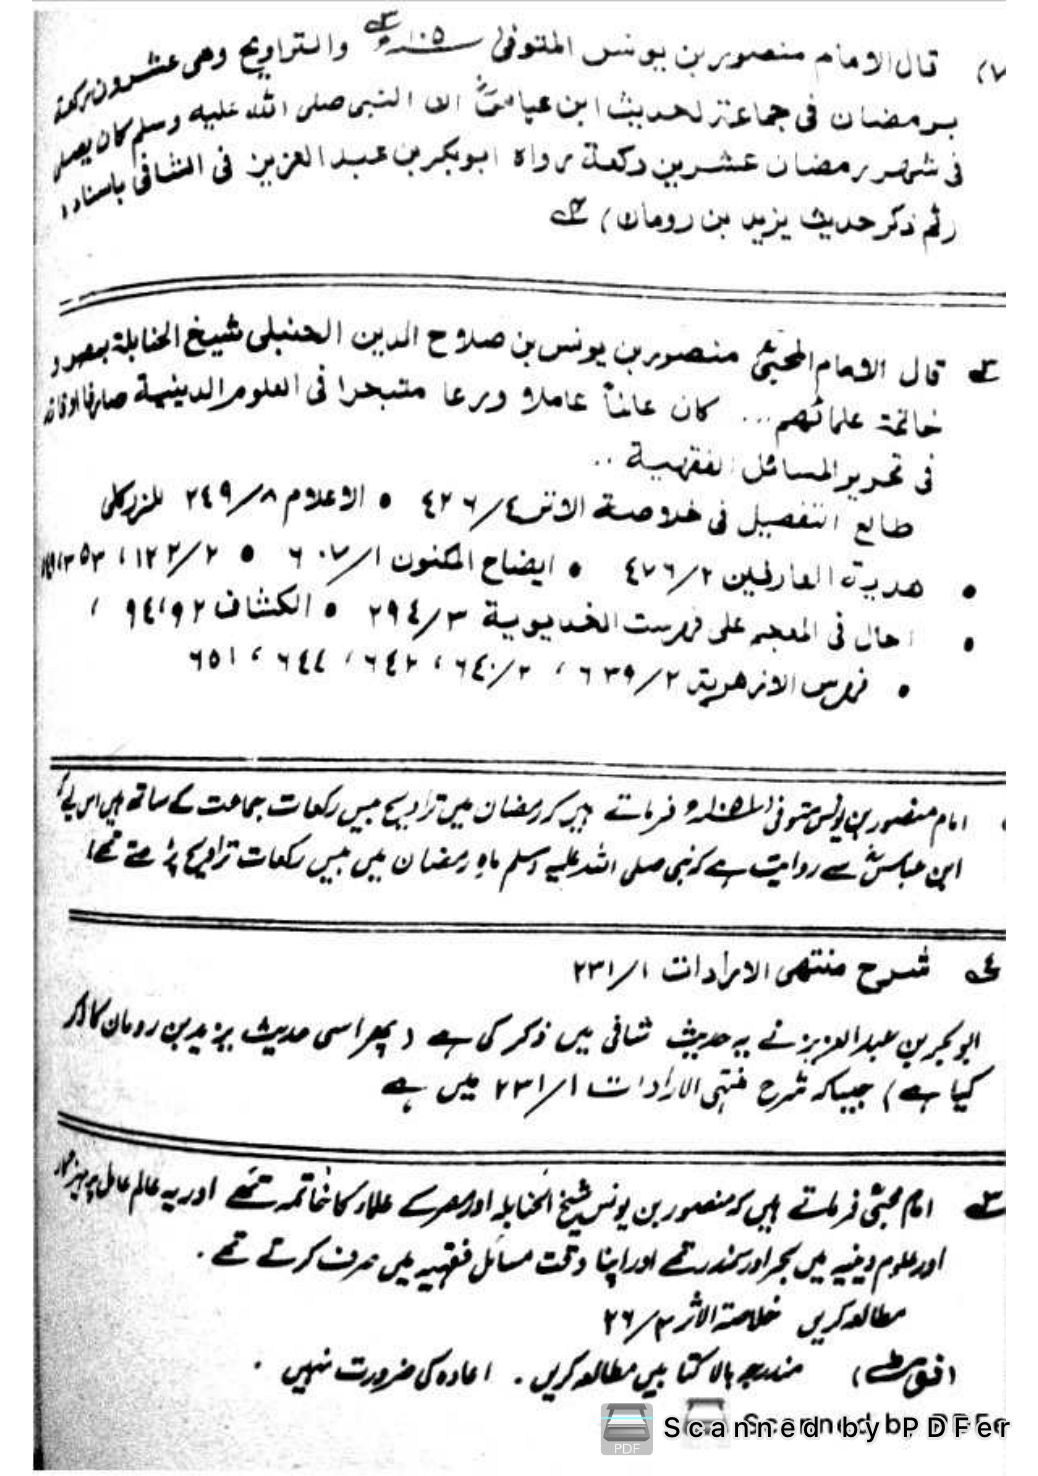 ٧) قال الامام منصور بن يونس المتوفى ١٠٥١ھ والتراويح وهى عشرون ركعة
برمضان فى جماعة لحديث ابن عباسؓ ان النبى صلى الله عليه وسلم كان يصلى
فى شهر رمضان عشرين ركعة رواه ابوبكر بن عبد العزيز فى الشافى باسناده
(ثم ذكر حديث يزيد بن رومان)
٣ قال الامام المحبىؒ منصور بن يونس بن صلاح الدين الحنبلى شيخ الحنابلة بمصر و
خاتمة علمائهم ... كان عالماً عاملا ورعا متبحرا فى العلوم الدينية صارفا اوقاته
فى تحرير المسائل الفقهية ..
طالع التفصيل فى خلاصة الاثر ٤/٤٢٦ • الاعلام ٨/٢٤٩ للزركلى
• هدية العارفين ٢/٤٧٦ • ايضاح المكنون ١/٦٠٧ • ٢/١٢٢، ٣٥٣
• احال فى المعجم على فهرست الخديوية ٣/٢٩٤ • الكشاف ٩٢، ٩٤،
• فهرس الازهرية ٢/٦٣٩، ٢/٦٤٠، ٦٤٢، ٦٤٤، ٦٥١
امام منصور بن یونس متوفی ١٠٥١ھ فرماتے ہیں کہ رمضان میں تراویح بیس رکعات جماعت کے ساتھ ہیں اس لیے کہ
ابن عباسؓ سے روایت ہے کہ نبی صلی اللہ علیہ وسلم ماہ رمضان میں بیس رکعات تراویح پڑھتے تھے۔
٤ شرح منتهى الارادات ١/٢٣١
ابوبکر بن عبدالعزیز نے یہ حدیث شافی میں ذکر کی ہے (پھر اسی حدیث یزید بن رومان کا ذکر
کیا ہے) جیسا کہ شرح منتہی الارادات ١/٢٣١ میں ہے
٣ امام محبیؒ فرماتے ہیں کہ منصور بن یونس شیخ الحنابلہ اور مصر کے علماء کا خاتمہ تھے اور یہ عالم عامل پرہیزگار
اور علوم دینیہ میں بحر اور سمندر تھے اور اپنا وقت مسائل فقہیہ میں صرف کرتے تھے۔
مطالعہ کریں خلاصة الاثر
(نوٹ) مندرجہ بالا کتابیں مطالعہ کریں۔ اعادہ کی ضرورت نہیں۔
Scanned by PDFer